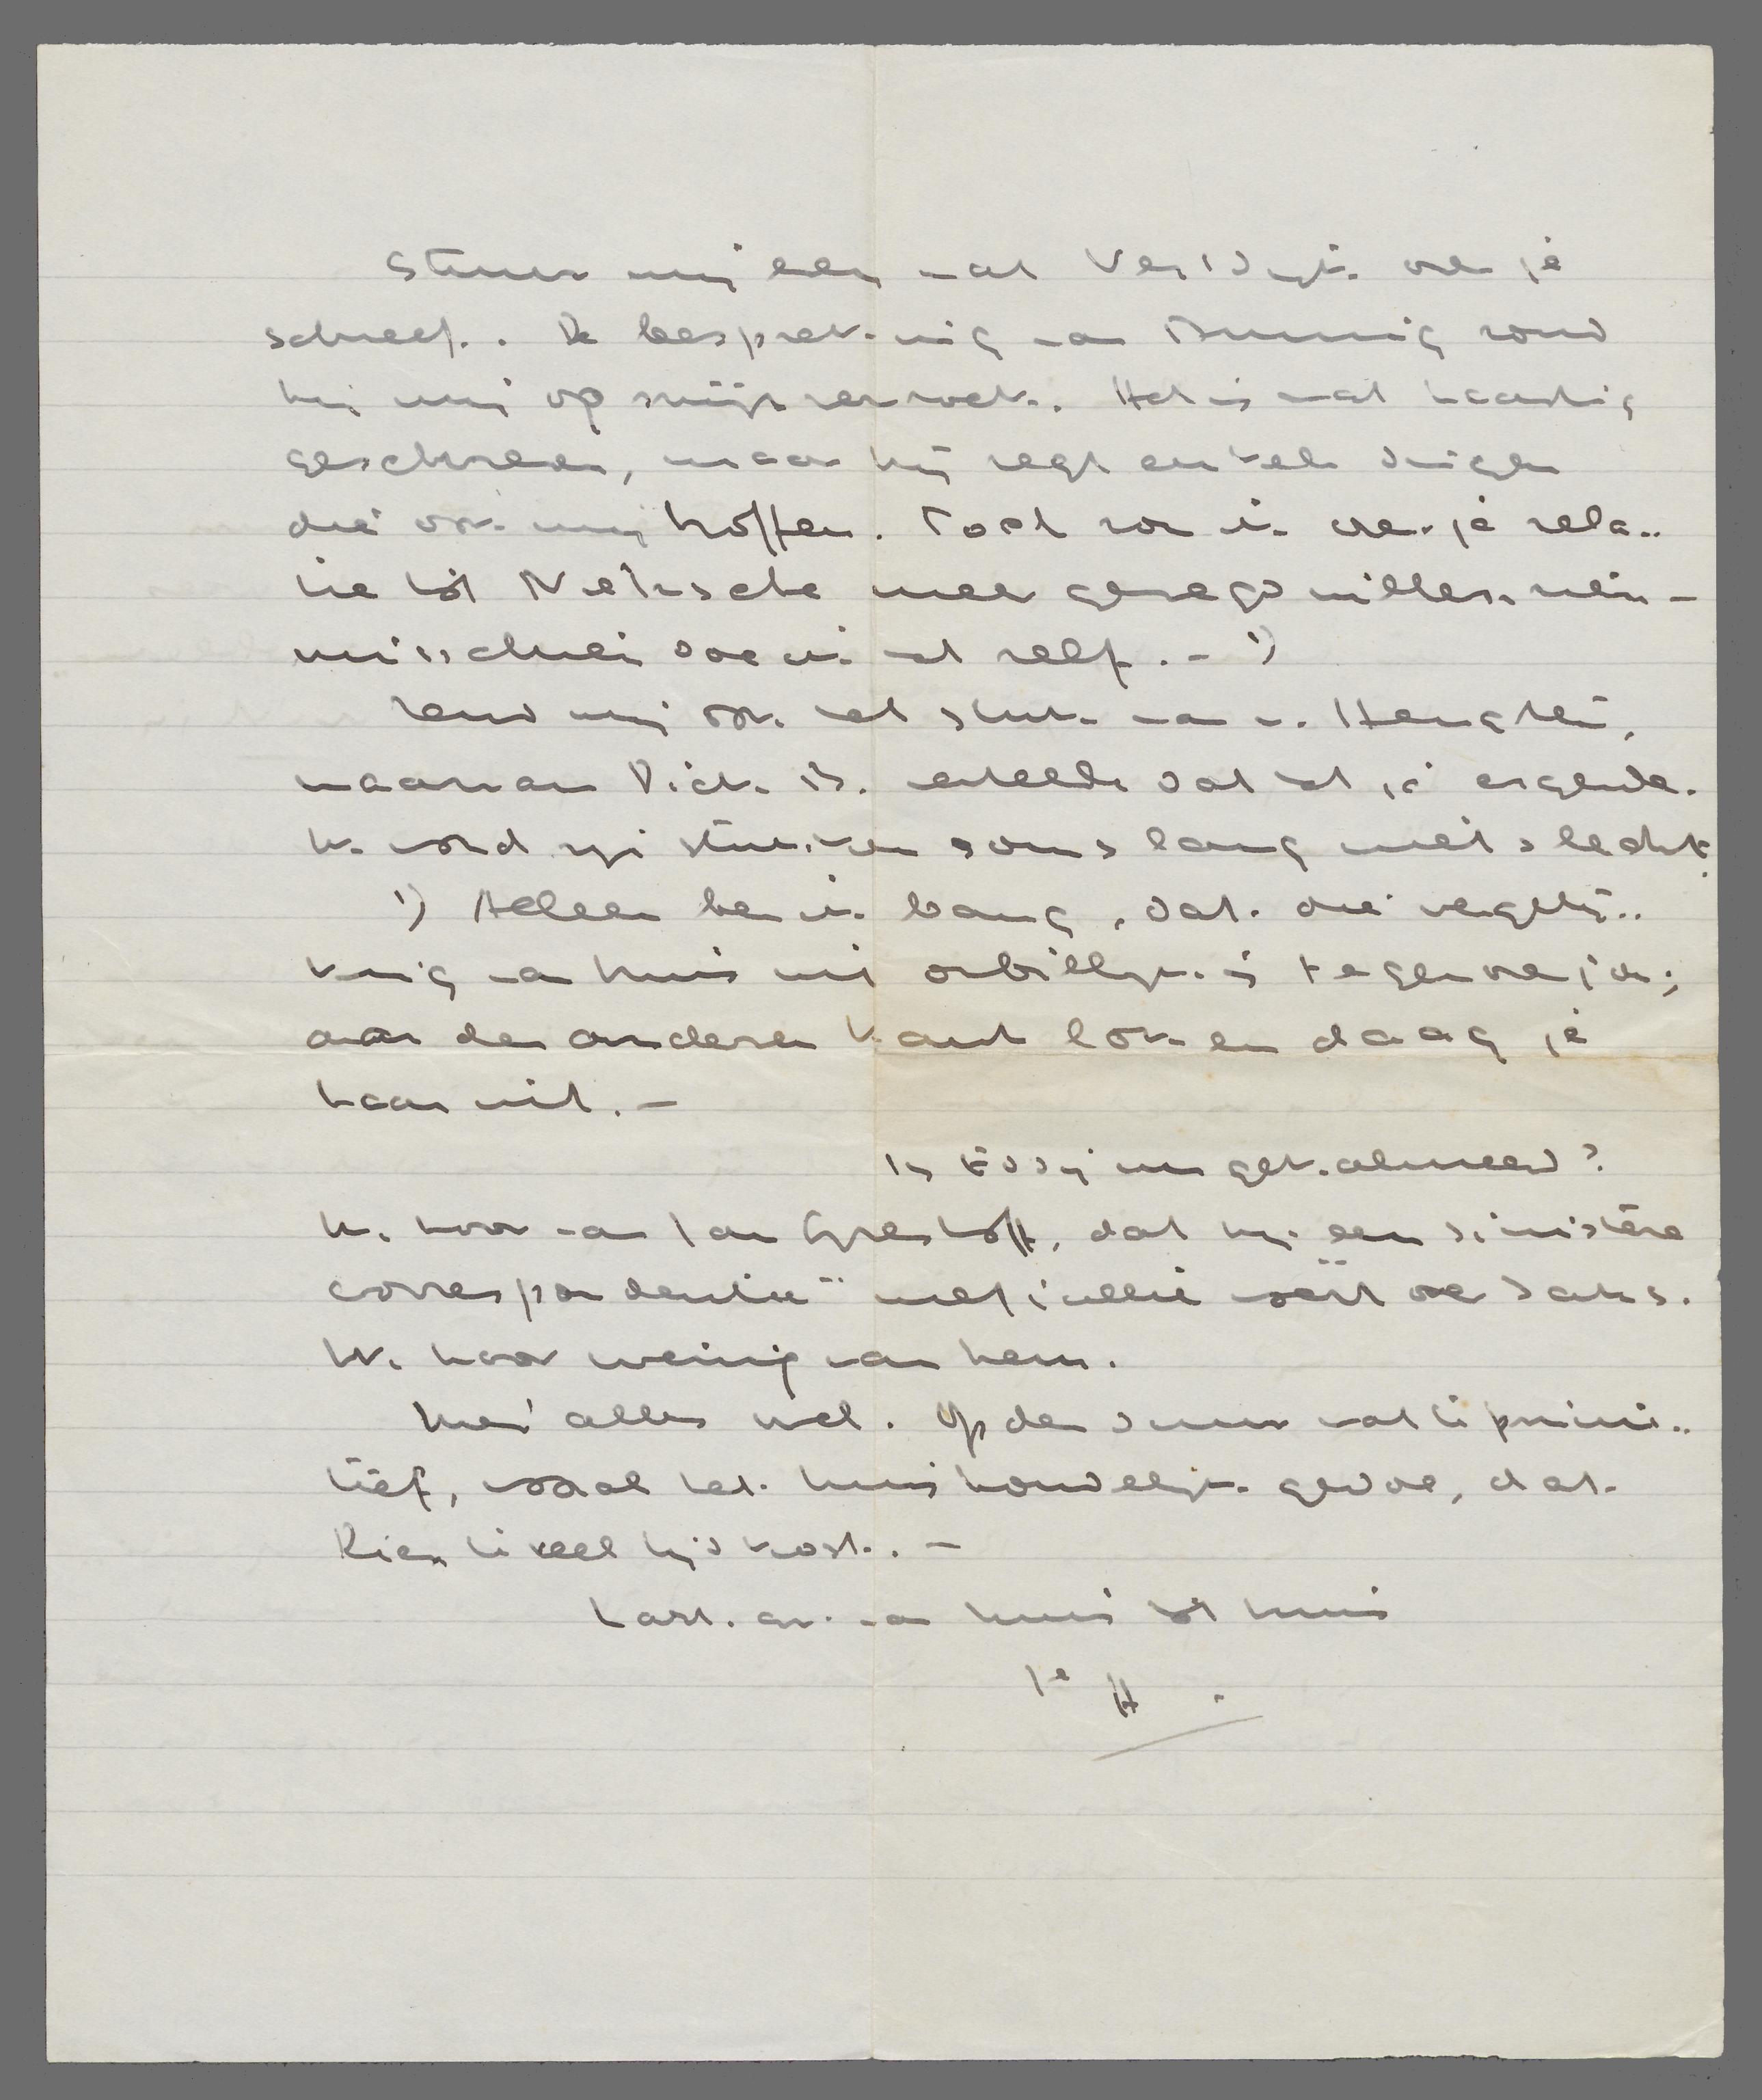 Stuur mij eens wat Verdijk over je
schreef. De bespreking van Binnendijk zond
hij mij op mijn verzoek. Het is wat haastig
geschreven, maar hij zegt enkele dingen
die ook mij troffen. Toch zou ik over je rela-
tie tot Nietzsche meer gezegd willen zien -
misschien doe ik het zelf. - 1)
Zend mij ook het stuk van v. Hengelen,
waarvan Dick B. vertelde dat het je ergerde.
Ik vond zijn stukken soms lang niet slecht.
1) Alleen ben ik bang, dat die vergelij-
king van huis uit onbillijk is tegenover jou;
aan den anderen kant lok en daag je
haar uit. -
Is Eddy nu gekalmeerd?
Ik hoor van Jan Greshoff, dat hij een sinistere
correspondentie met jullie voert over
Ik hoor weinig van hem.
Hier alles wel. Op den duur wat te primi-
tief, vooral het huishoudelijk gedoe, dat
Rien te veel tijd kost. -
Hart. gr. van huis tot huis
je H.